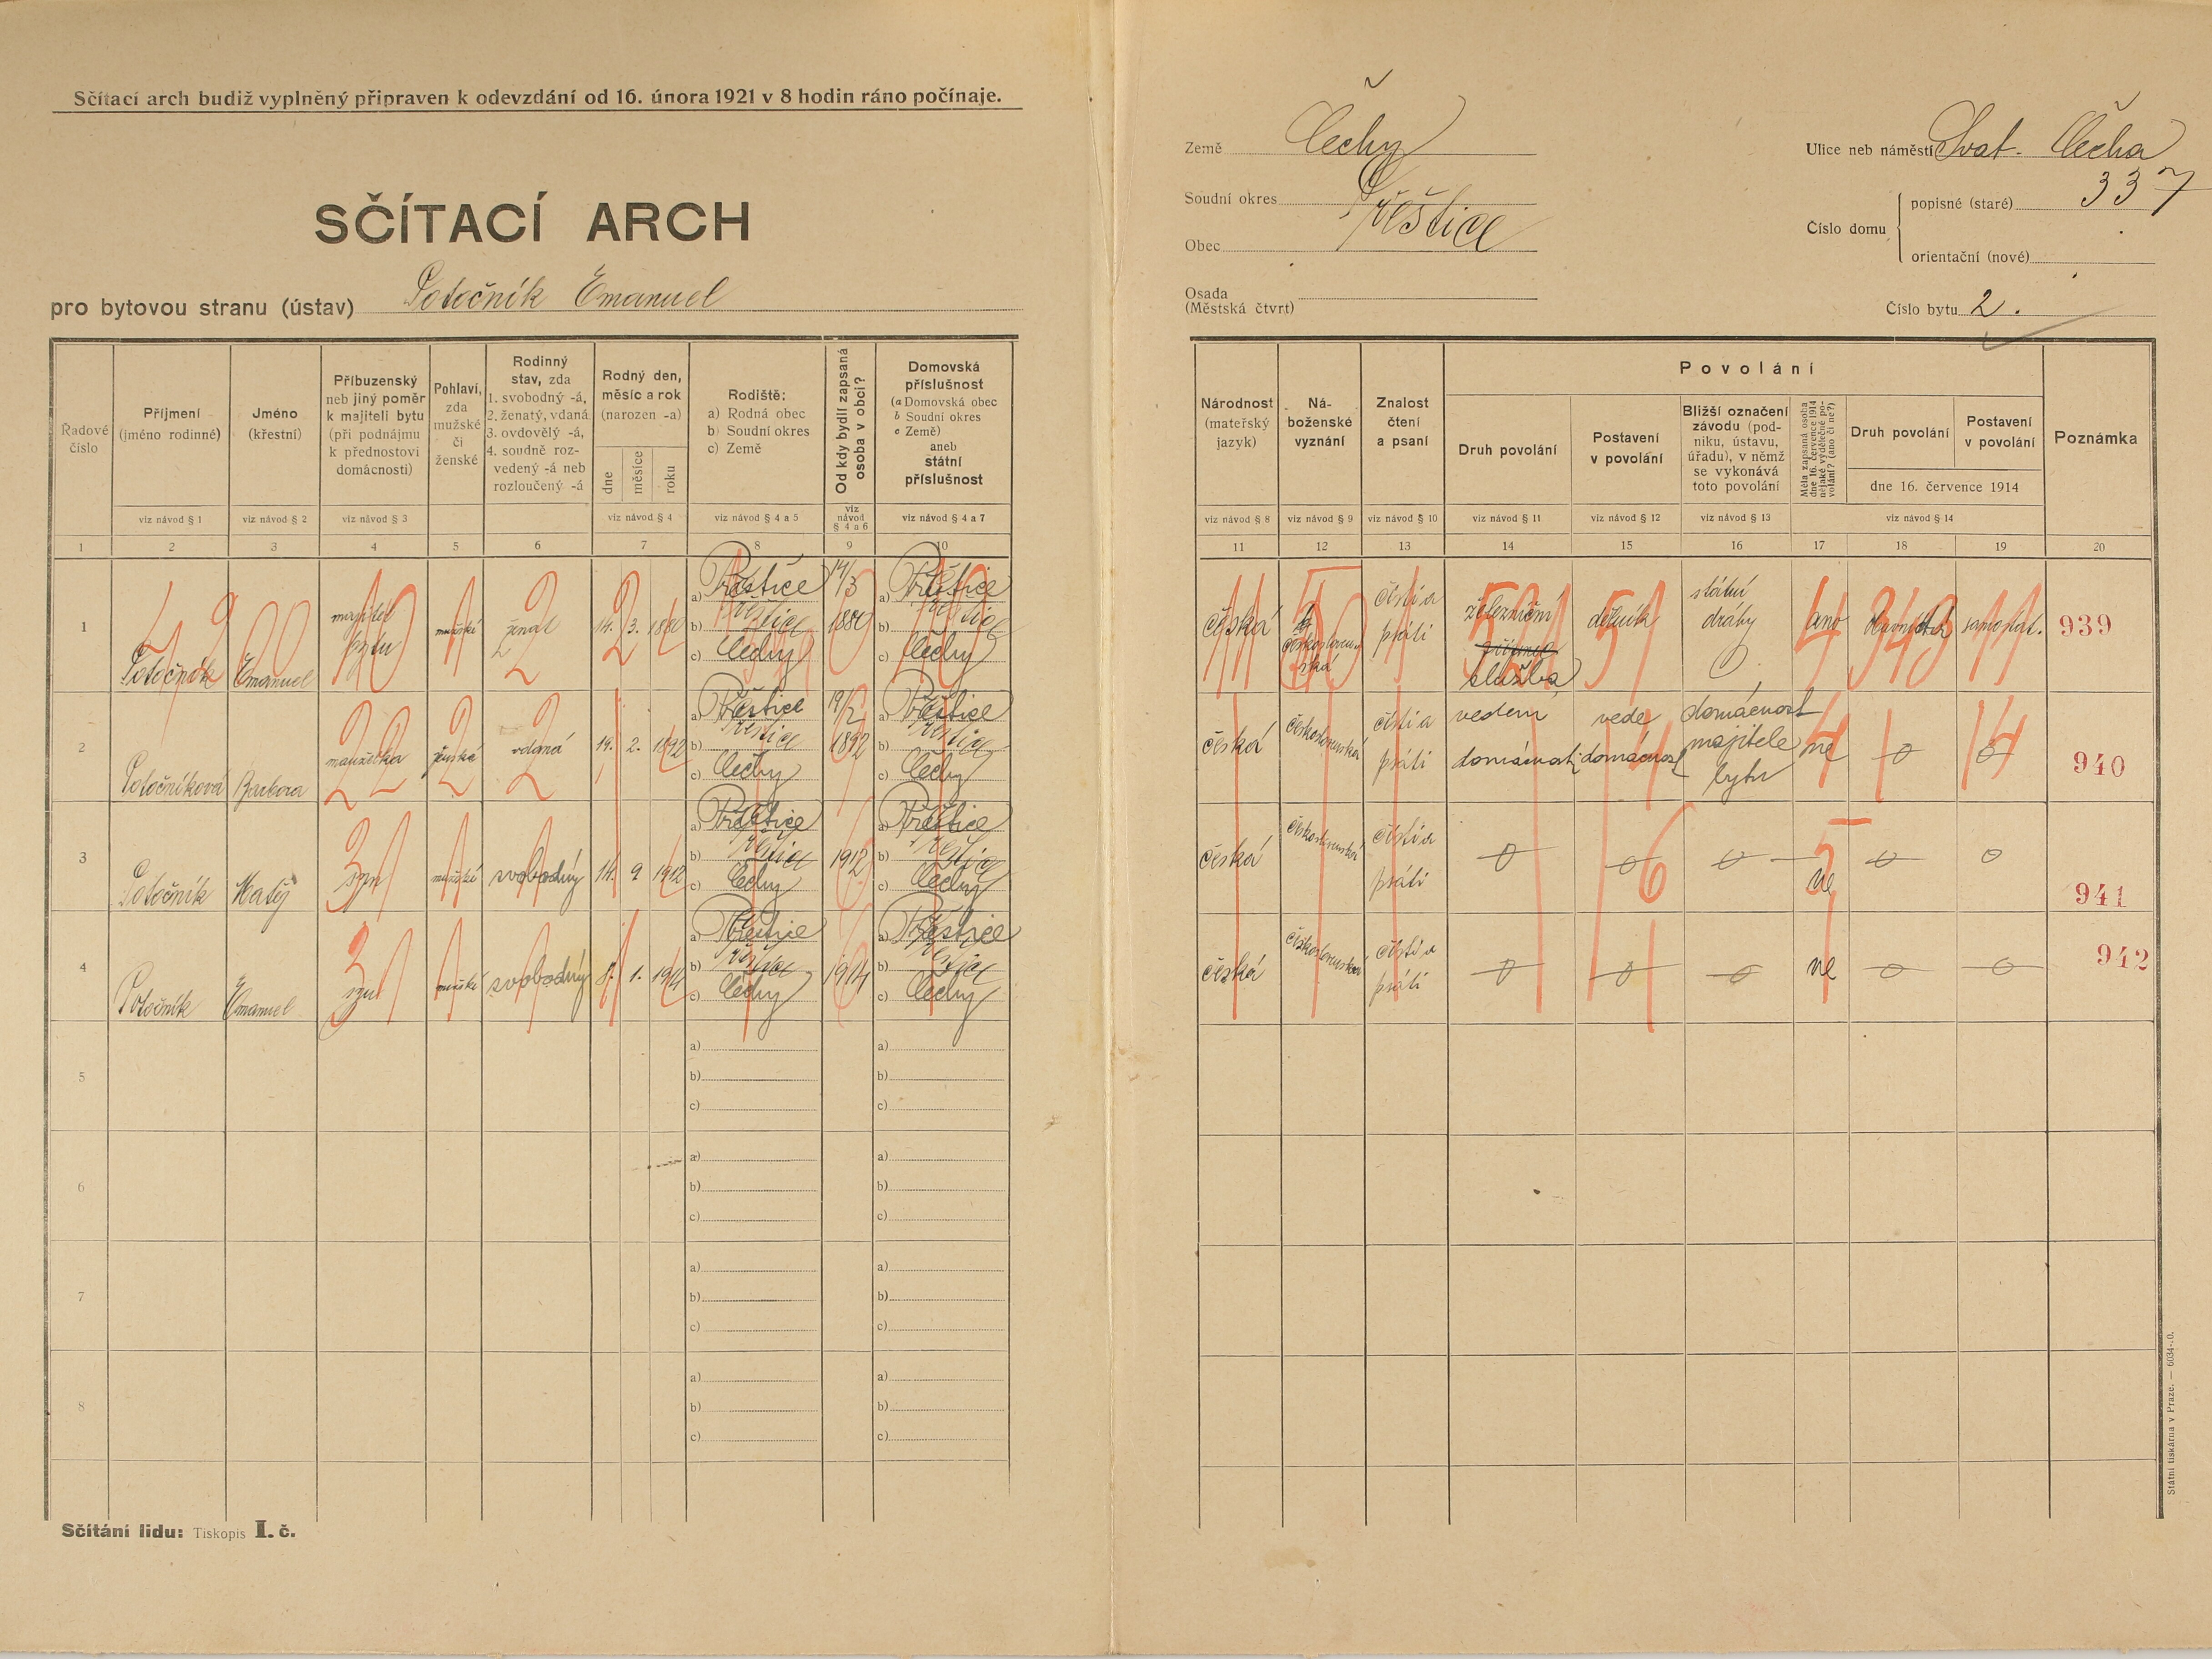 Sčítací arch budiž vyplněný připraven k odevzdání od 16. února 1921 v 8 hodin ráno počínaje.
SČÍTACÍ ARCH
pro bytovou stranu (ústav) Potočník Emanuel
Země Čechy
Soudní okres Přeštice
Obec
Osada
(Městská čtvrt)
Ulice neb náměstí Svat. Čecha
Číslo domu
popisné (staré) 337
orientační (nové)
Číslo bytu 2.
Řadové
číslo
Příjmení
(jméno rodinné)
Jméno
(křestní)
Příbuzenský
neb jiný poměr
k majiteli bytu
(při podnájmu
k přednostovi
domácnosti)
Pohlaví,
zda
mužské
či
ženské
Rodinný
stav, zda
1. svobodný -á,
2. ženatý, vdaná
3. ovdovělý -á,
4. soudně roz-
vedený -á neb
rozloučený -á
Rodný den,
měsíc a rok
(narozen -a)
dne
měsíce
roku
Rodiště:
a) Rodná obec
b) Soudní okres
c) Země
Od kdy bydlí zapsaná
osoba v obci?
Domovská
příslušnost
(a Domovská obec
b Soudní okres
c Země)
aneb
státní
příslušnost
viz návod § 1
viz návod § 2
viz návod § 3
viz návod § 4
viz návod § 4 a 5
viz
návod
§ 4 a 6
viz návod § 4 a 7
1 2 3 4 5 6 7 8 9 10
Národnost
(mateřský
jazyk)
Ná-
boženské
vyznání
Znalost
čtení
a psaní
Povolání
Druh povolání
Postavení
v povolání
Bližší označení
závodu (pod-
niku, ústavu,
úřadu), v němž
se vykonává
toto povolání
Měla zapsaná osoba
dne 16. července 1914
nějaké výdělečné po-
volání? (ano či ne?)
Druh povolání
Postavení
v povolání
dne 16. července 1914
Poznámka
viz návod § 8
viz návod § 9
viz návod § 10
viz návod § 11
viz návod § 12
viz návod § 13
viz návod § 14
11 12 13 14 15 16 17 18 19 20
1 Potočník Emanuel
majitel
bytu
mužské
ženat
14. 3. 1880
a) Přeštice
b) Přeštice
c) Čechy
14/3
1880
a) Přeštice
b) Přeštice
c) Čechy
česká
českosloven-
ská
čísti a
psáti
železniční
služba
dělník
státní
dráhy
ano
samostat.
939
2 Potočníková Barbora
manželka
ženské
vdaná
19. 2. 1892
a) Přeštice
b) Přeštice
c) Čechy
19/2
1892
a) Přeštice
b) Přeštice
c) Čechy
česká
československá
čísti a
psáti
vedení
domácnosti
vede
domácnost
domácnost
majitele
bytu
ne
0
0
940
3 Potočník Matěj
syn
mužské
svobodný
14. 9 1912
a) Přeštice
b) Přeštice
c) Čechy
1912
a) Přeštice
b) Přeštice
c) Čechy
česká
československá
čísti a
psáti
0
0
0
ne
0
0
941
4 Potočník Emanuel
syn
mužské
svobodný
8. 1. 1914
a) Přeštice
b) Přeštice
c) Čechy
1914
a) Přeštice
b) Přeštice
c) Čechy
česká
československá
čísti a
psáti
0
0
0
ne
0
0
942
5
a)
b)
c)
a)
b)
c)
6
a)
b)
c)
a)
b)
c)
7
a)
b)
c)
a)
b)
c)
8
a)
b)
c)
a)
b)
c)
Sčítání lidu: Tiskopis I. č.
Státní tiskárna v Praze. — 6034-.0.